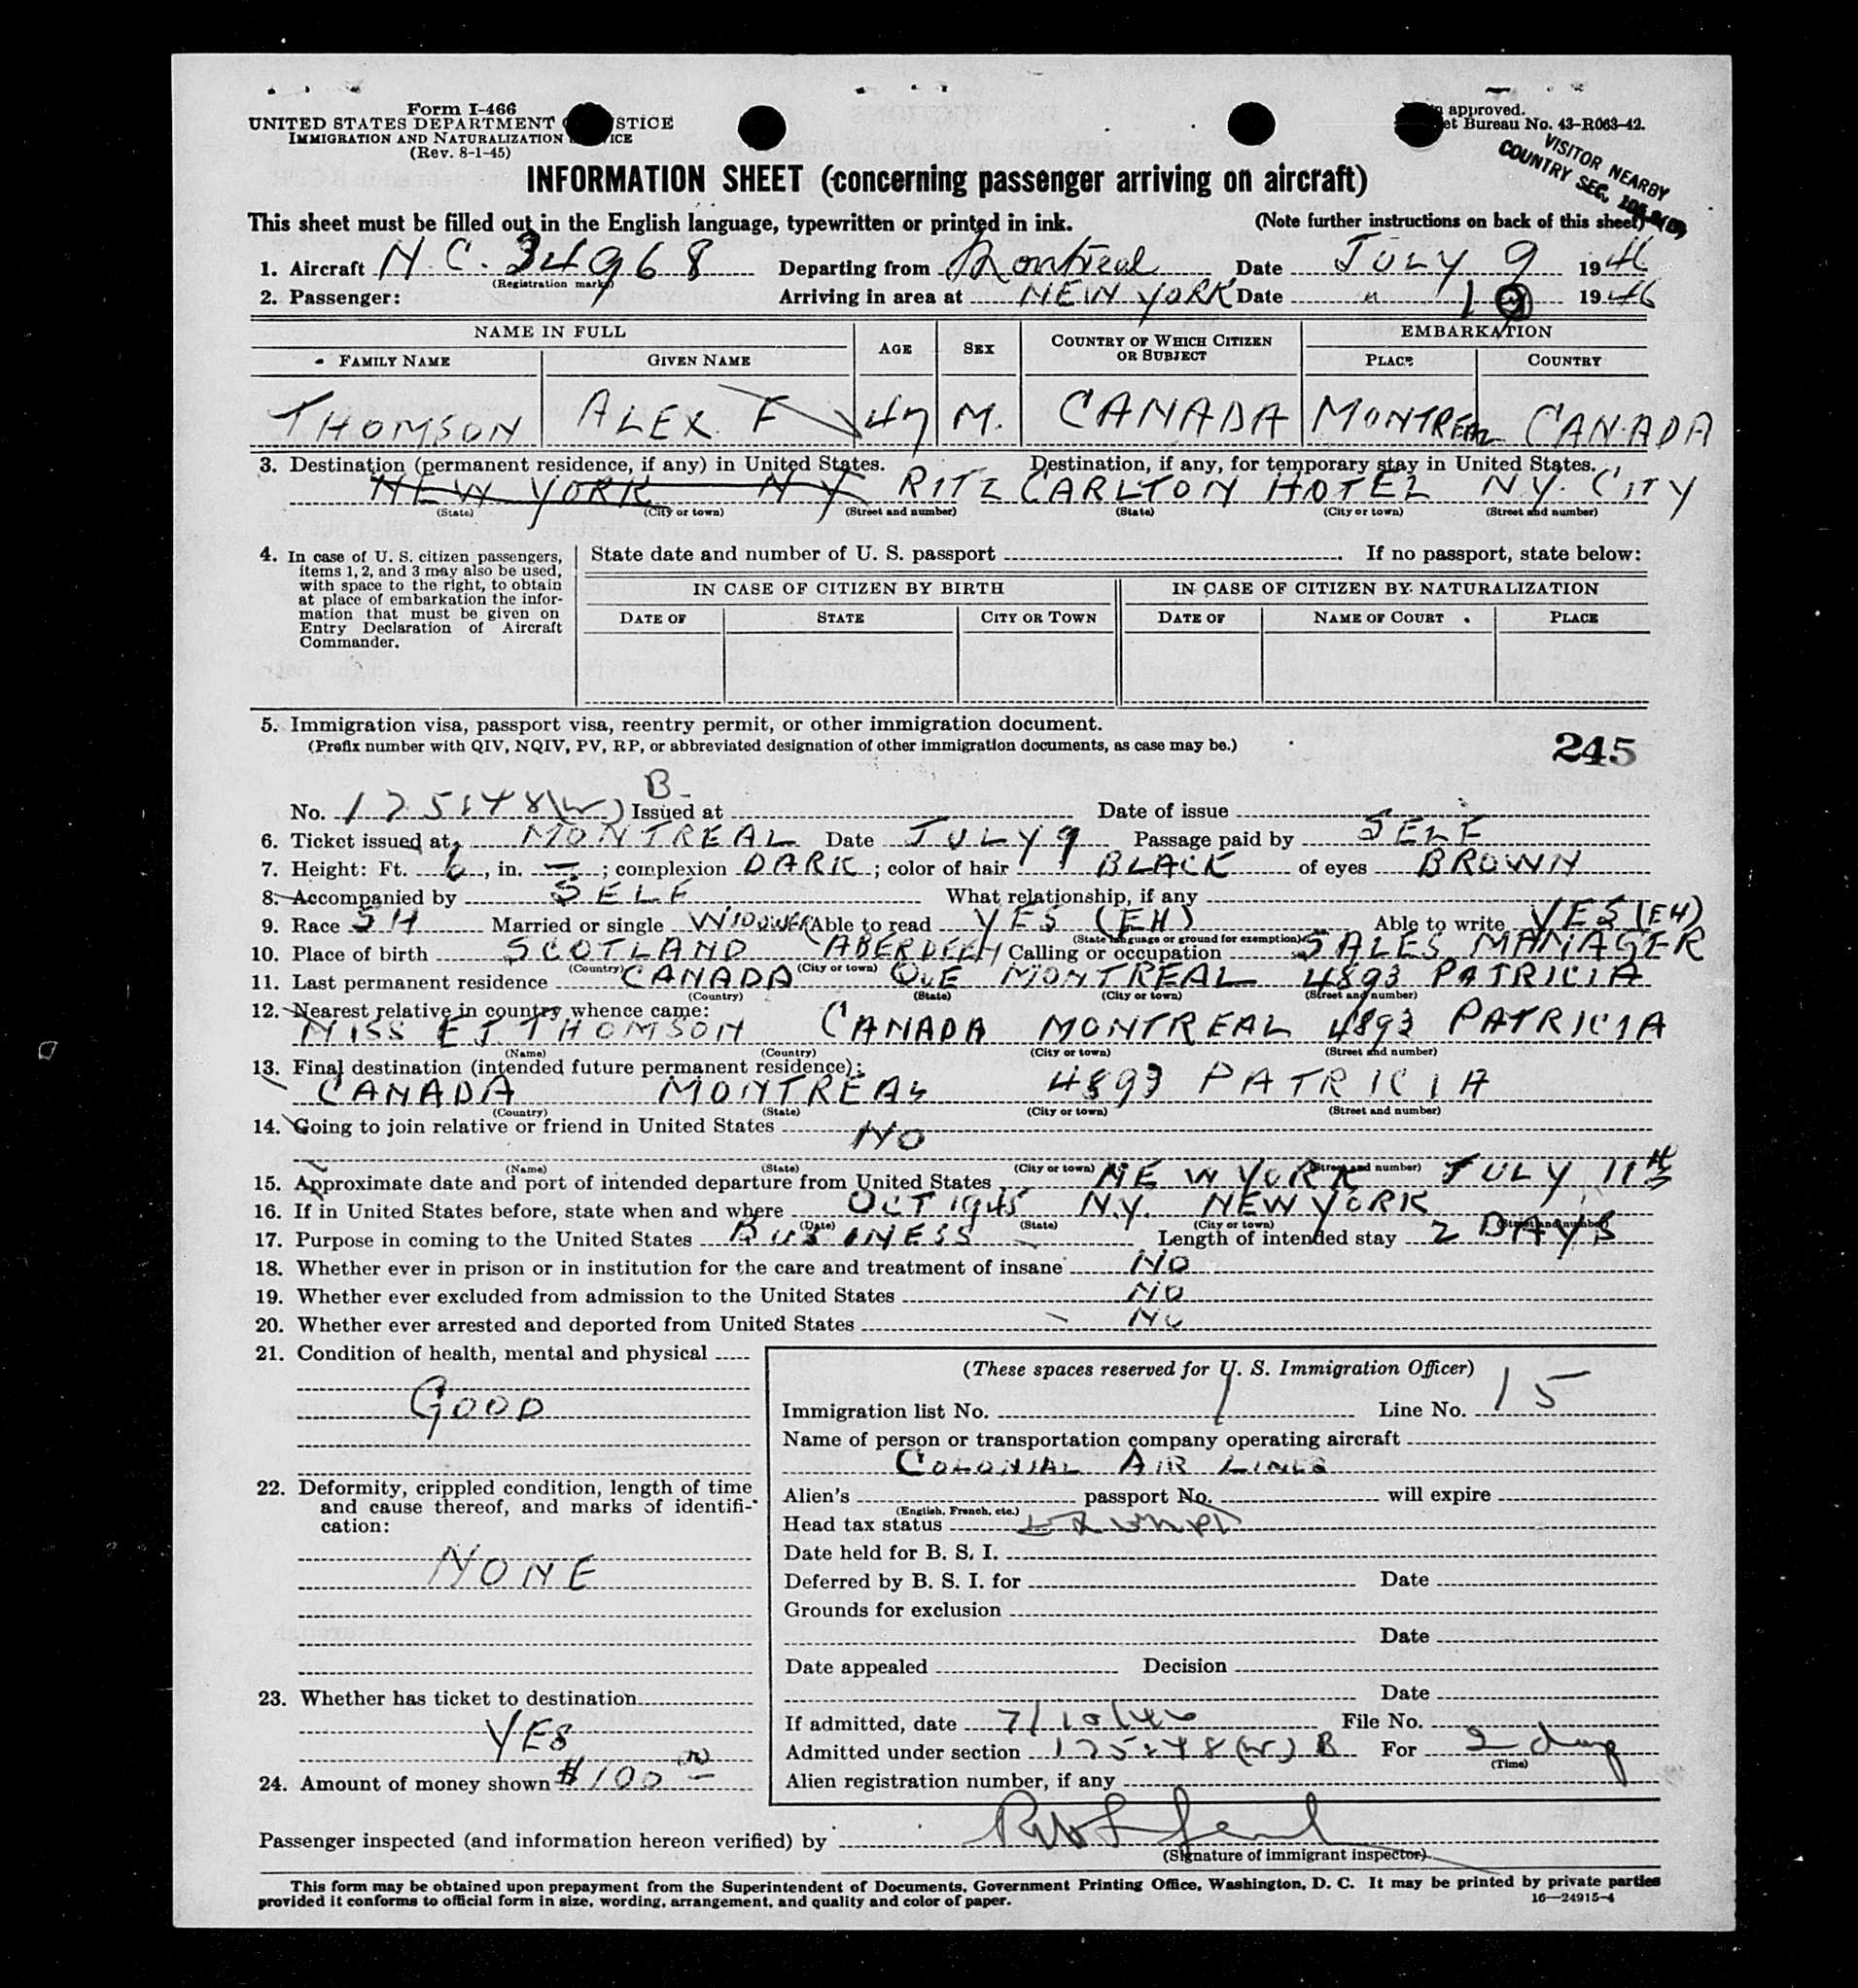 Form I-466
UNITED STATES DEPARTMENT STICE
IMMIGRATION AND NATURALIZATION ICE
(Rev. 8-1-45)
approved.
et Bureau No. 43-R063-42.
VISITOR NEARBY
COUNTRY SEC.
INFORMATION SHEET (concerning passenger arriving on aircraft)
This sheet must be filled out in the English language, typewritten or printed in ink. (Note further instructions on back of this sheet)
1. Aircraft N.C. 34968 Departing from Montreal Date JULY 9 1946
(Registration marks)
2. Passenger: Arriving in area at NEW YORK Date " 10 1946
NAME IN FULL AGE SEX COUNTRY OF WHICH CITIZEN OR SUBJECT EMBARKATION
FAMILY NAME GIVEN NAME PLACE COUNTRY
THOMSON ALEX F 47 M. CANADA MONTREAL CANADA
3. Destination (permanent residence, if any) in United States. Destination, if any, for temporary stay in United States.
NEW YORK NY RITZ CARLTON HOTEL N.Y. CITY
(State) (City or town) (Street and number) (State) (City or town) (Street and number)
4. In case of U. S. citizen passengers,
items 1, 2, and 3 may also be used,
with space to the right, to obtain
at place of embarkation the infor-
mation that must be given on
Entry Declaration of Aircraft
Commander.
State date and number of U. S. passport . If no passport, state below:
IN CASE OF CITIZEN BY BIRTH IN CASE OF CITIZEN BY NATURALIZATION
DATE OF STATE CITY OR TOWN DATE OF NAME OF COURT PLACE
5. Immigration visa, passport visa, reentry permit, or other immigration document.
(Prefix number with QIV, NQIV, PV, RP, or abbreviated designation of other immigration documents, as case may be.)
245
B
No. 175:48(W) Issued at Date of issue
6. Ticket issued at MONTREAL Date JULY 9 Passage paid by SELF
7. Height: Ft. 6, in. —; complexion DARK; color of hair BLACK of eyes BROWN
8. Accompanied by SELF What relationship, if any
9. Race SH Married or single WIDOWER Able to read YES (EH) Able to write YES (EH)
(State language or ground for exemption)
10. Place of birth SCOTLAND ABERDEEN Calling or occupation SALES MANAGER
(Country) (City or town)
11. Last permanent residence CANADA QUE MONTREAL 4893 PATRICIA
(Country) (State) (City or town) (Street and number)
12. Nearest relative in country whence came:
MISS E J THOMSON CANADA MONTREAL 4893 PATRICIA
(Name) (Country) (City or town) (Street and number)
13. Final destination (intended future permanent residence):
CANADA MONTREAL 4893 PATRICIA
(Country) (State) (City or town) (Street and number)
14. Going to join relative or friend in United States NO
(Name) (State) (City or town) (Street and number)
15. Approximate date and port of intended departure from United States NEW YORK JULY 11th
16. If in United States before, state when and where OCT 1945 N.Y. NEW YORK
(Date) (State) (City or town) (Street and number)
17. Purpose in coming to the United States BUSINESS Length of intended stay 2 DAYS
18. Whether ever in prison or in institution for the care and treatment of insane NO
19. Whether ever excluded from admission to the United States NO
20. Whether ever arrested and deported from United States NO
21. Condition of health, mental and physical
GOOD
22. Deformity, crippled condition, length of time
and cause thereof, and marks of identifi-
cation:
NONE
23. Whether has ticket to destination
YES
24. Amount of money shown $100 00
(These spaces reserved for U. S. Immigration Officer)
Immigration list No. 1 Line No. 15
Name of person or transportation company operating aircraft
COLONIAL AIR LINES
Alien's passport No. will expire
(English, French, etc.)
Head tax status Exempt
Date held for B. S. I.
Deferred by B. S. I. for Date
Grounds for exclusion
Date
Date appealed Decision
Date
If admitted, date 7/10/46 File No.
Admitted under section 175:48(W) B For 2 days
(Time)
Alien registration number, if any
Passenger inspected (and information hereon verified) by
(Signature of immigrant inspector)
This form may be obtained upon prepayment from the Superintendent of Documents, Government Printing Office, Washington, D. C. It may be printed by private parties
provided it conforms to official form in size, wording, arrangement, and quality and color of paper. 16—24915-4